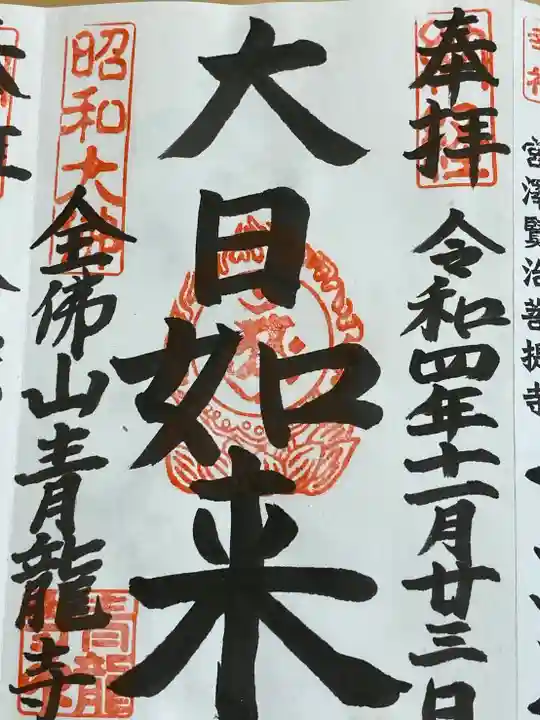 宮澤賢治菩提寺
奉拝
令和四年十一月廿三日
大日如来
昭和大佛
全佛山青龍寺
青龍